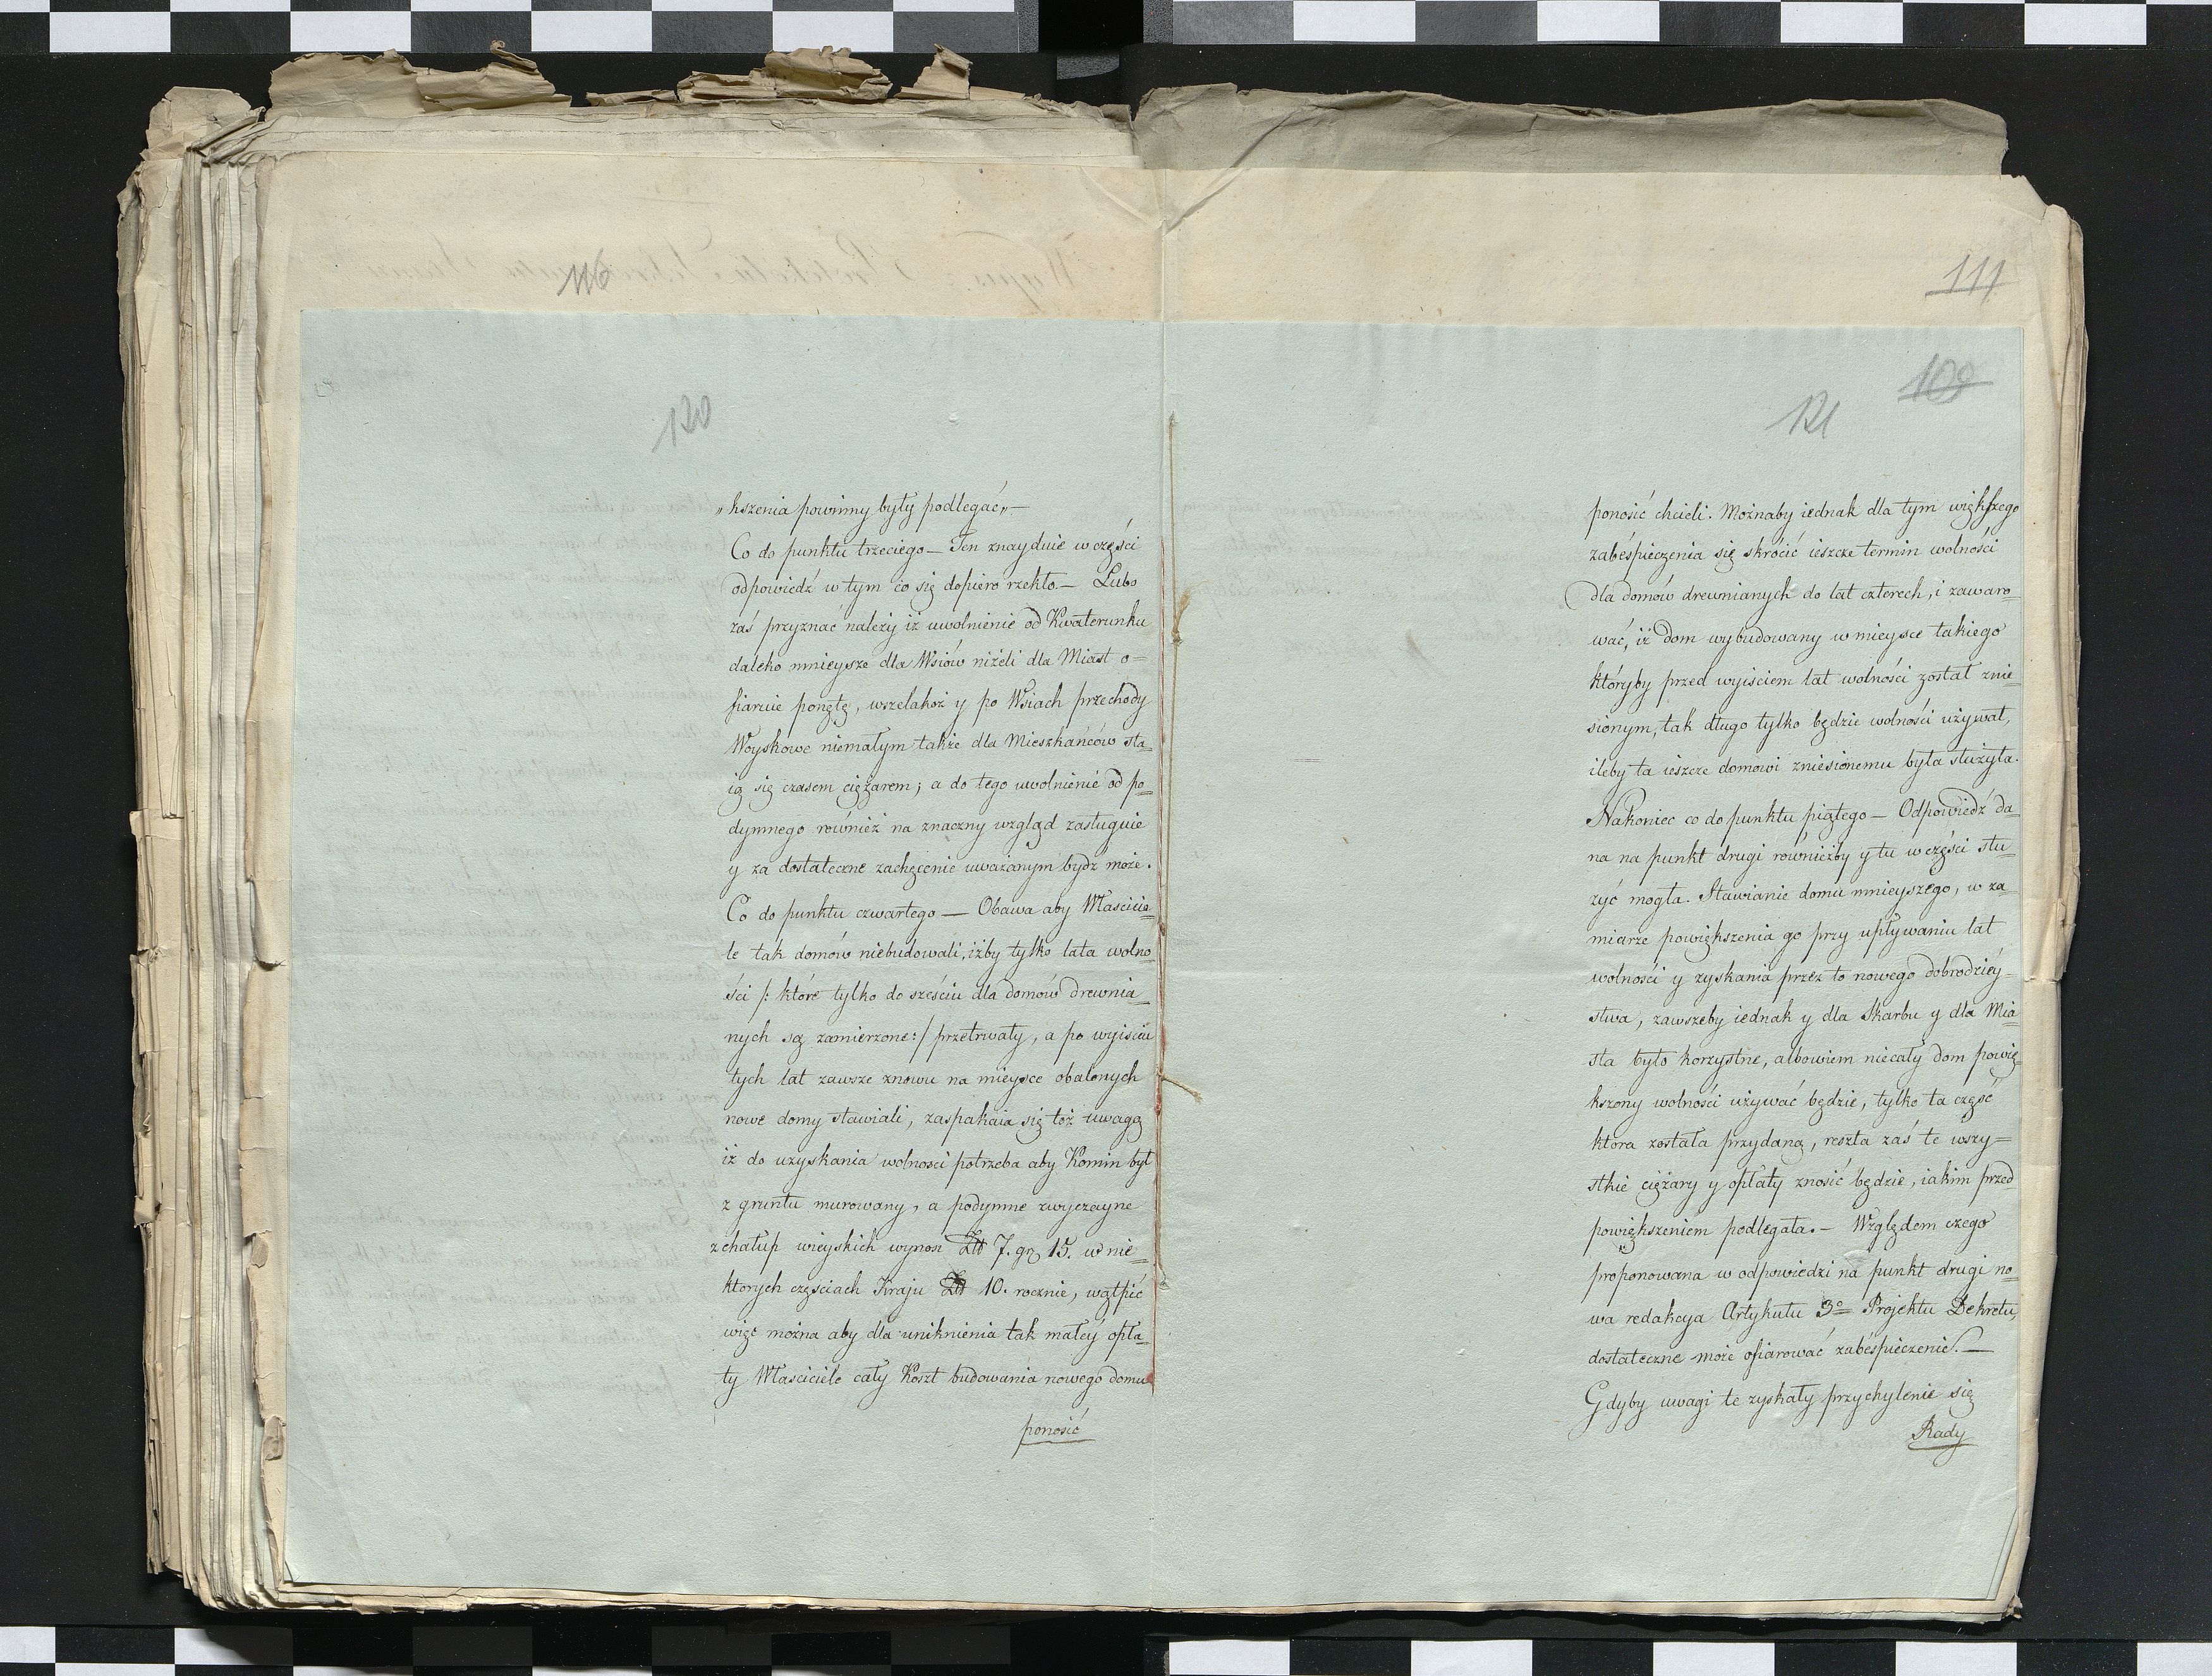 116
120
„kszenia powinny były podlegać„ —
Co do punktu trzeciego — Ten znayduie w części
odpowiedź w tym co się dopiero rzekło. — Lubo
zaś przyznać należy iż uwolnienie od Kwaterunku
daleko mnieysze dla Wsiów niżeli dla Miast o=
fiaruie ponętę, wszelakoż y po Wsiach przechody
Woyskowe niemałym także dla Mieszkańców sta=
ią się czasem ciężarem; a do tego uwolnienie od po=
dymnego również na znaczny wzgląd zasługuie
y za dostateczne zachęcenie uważanym bydź może.
Co do punktu czwartego — Obawa aby Włascicie=
le tak domów niebudowali, iżby tylko lata wolno=
ści /: które tylko do sześciu dla domów drewnia=
nych są zamierzone :/ przetrwały, a po wyisciu
tych lat zawsze znowu na mieysce obalonych
nowe domy stawiali, zaspakaia się tóż uwagą
iż do uzyskania wolnosci potrzeba aby Komin był
z gruntu murowany, a podymne zwyczayne
z chałup wieyskich wynosi Złł 7. gr 15. w nie=
ktorych częsciach Kraju Złł 10. rocznie, wątpić
więc można aby dla uniknienia tak małéy opła=
ty Własciciele cały Koszt budowania nowego domu
ponosić
111
109
121
ponosić chcieli. Możnaby iednak dla tym większego
zabéspieczenia się skrócić ieszcze termin wolności
dla domów drewnianych do lat czterech, i zawaro=
wać, iż dom wybudowany w mieysce takiego
któryby przed wyisciem lat wolności został znie=
sionym, tak długo tylko będzie wolności używał,
ileby ta ieszcze domowi zniesionemu była służyła.
Nakoniec co do punktu piątego — Odpowiedź da=
na na punkt drugi równieżby y tu w części słu=
żyć mogła. Stawianie domu mnieyszego, w za=
miarze powiększenia go przy upływaniu lat
wolności y zyskania przez to nowego dobrodziéy=
stwa, zawszeby iednak y dla Skarbu y dla Mia=
sta było korzystne, albowiem niecały dom powię=
kszony wolności używać będzie, tylko ta część
ktora została przydaną, reszta zaś te wszy=
stkie ciężary y opłaty znosić będzie, iakim przed
powiększeniem podlegała. — Względem czego
proponowana w odpowiedzi na punkt drugi no=
wa redakcya Artykułu 3º Projektu Dekretu,
dostateczne może ofiarować zabéspieczenie. —
Gdyby uwagi te zyskały przychylenie się
Rady